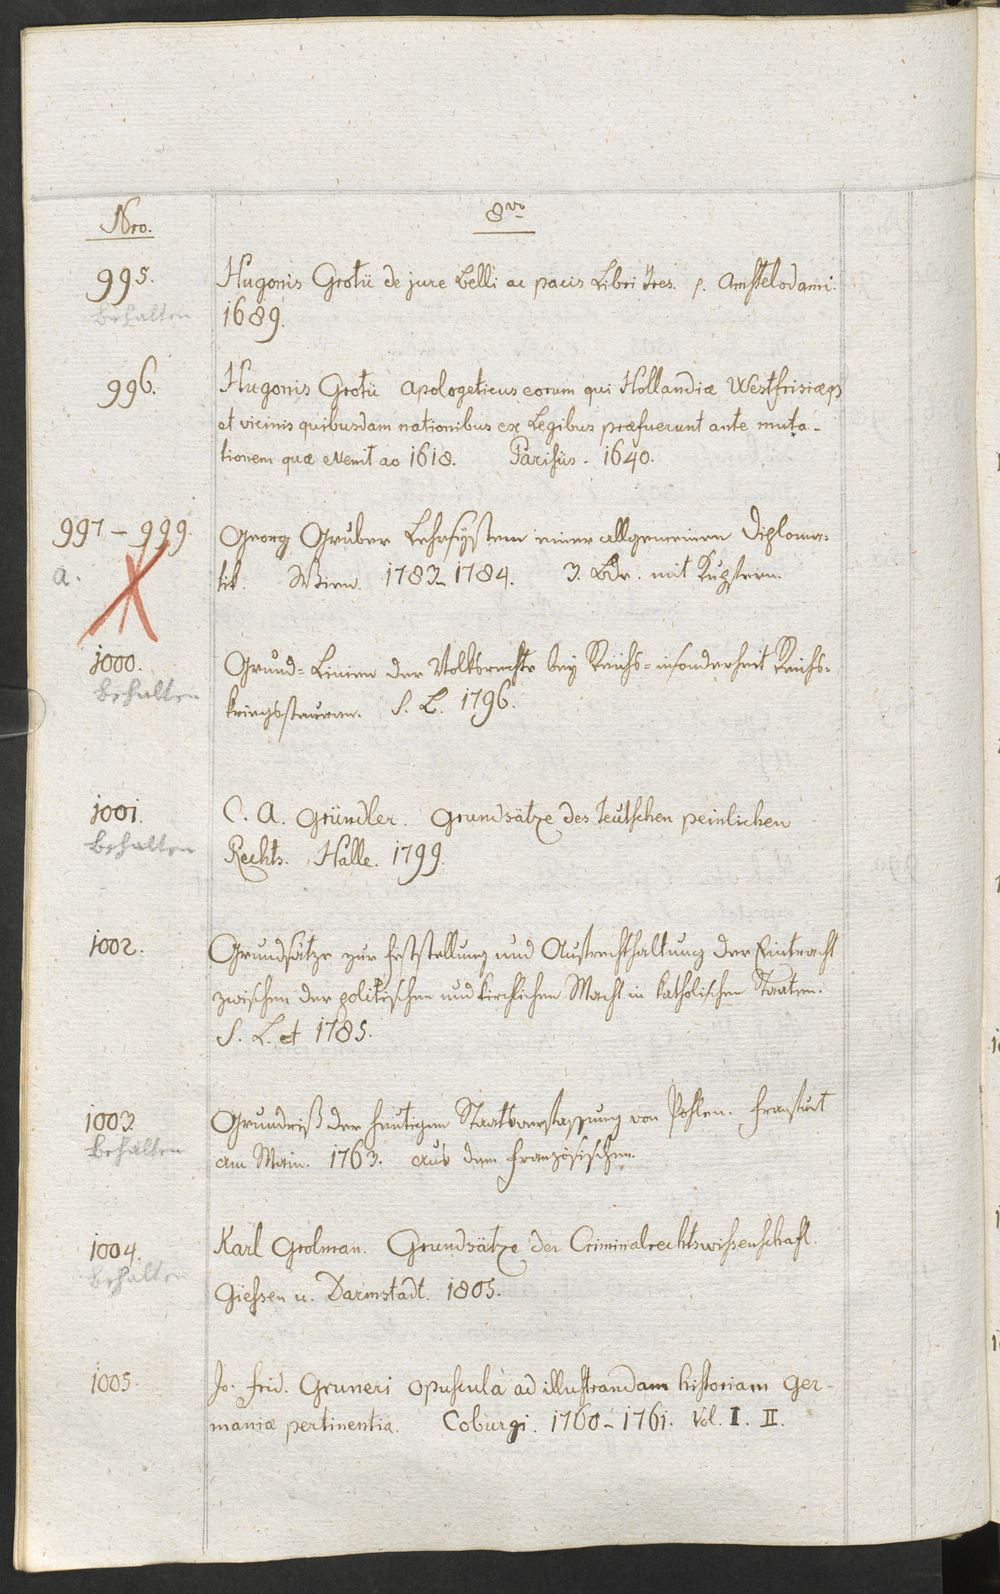 Nro.
8vo
995.
Hugonis Grotii de jure Belli ac pacis Libri tres. p. Amstelodami.
behalten
1689.
996.
Hugonis Grotii Apologeticus eorum qui Hollandiæ Westfrisiæq
et vicinis quibusdam nationibus ex Legibus præfuerunt ante muta-
tionem quæ evenit ao 1618. Parisiis. 1640.
997-999.
Georg Gruber Lehrsystem einer allgemeinen Diploma-
a.
tik. Wien. 1783-1784. 3. Bde. mit Kupfern.
1000.
Grund-Linien der Volksrechte bey Reichs-insonderheit Reichs-
behalten
kriegssteuern. S. L. 1796.
1001.
C. A. Gründler. Grundsätze des teutschen peinlichen
behalten
Rechts. Halle. 1799.
1002.
Grundsätze zur Feststellung und Aufrechthaltung der Eintracht
zwischen der politischen und kirchlichen Macht in katholischen Staaten.
S. L. et 1785.
1003.
Grundriß der heutigen Staatsverfassung von Pohlen. Franfurt
behalten
am Main. 1763. aus dem Französischen.
1004.
Karl Grolman. Grundsätze der Criminalrechtswissenschaft.
behalten
Giessen u. Darmstadt. 1805.
1005.
Jo. Frid. Gruneri opuscula ad illustrandam historiam Ger-
maniæ pertinentia. Coburgi. 1760-1761. Vol. I. II.